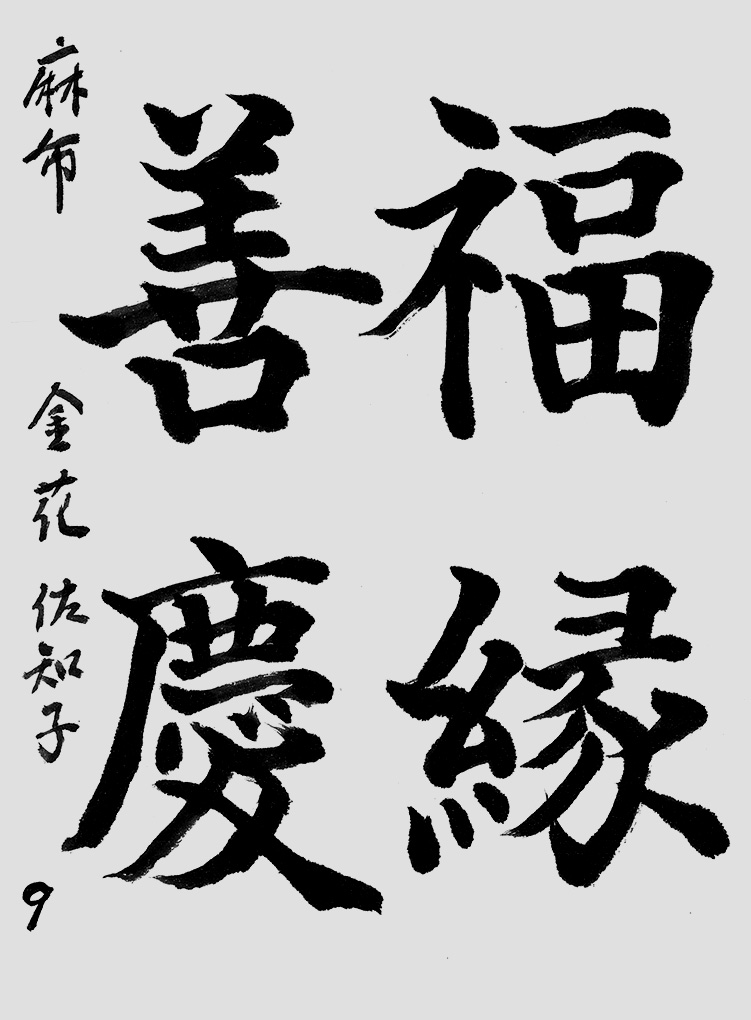 福縁
善慶
麻布 金花佐知子 9